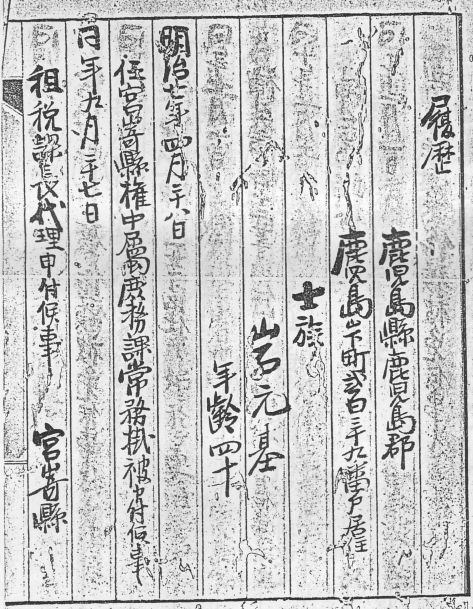 履歴
鹿児島縣鹿児島郡
鹿児島山下町弐百三十九番戸居住
士族
岩元基
年齢四十
明治七年四月二十八日
任宮崎縣権中属庶務課常務掛被申付候事
同年九月二十七日
租税課長代理申付候事 宮崎縣